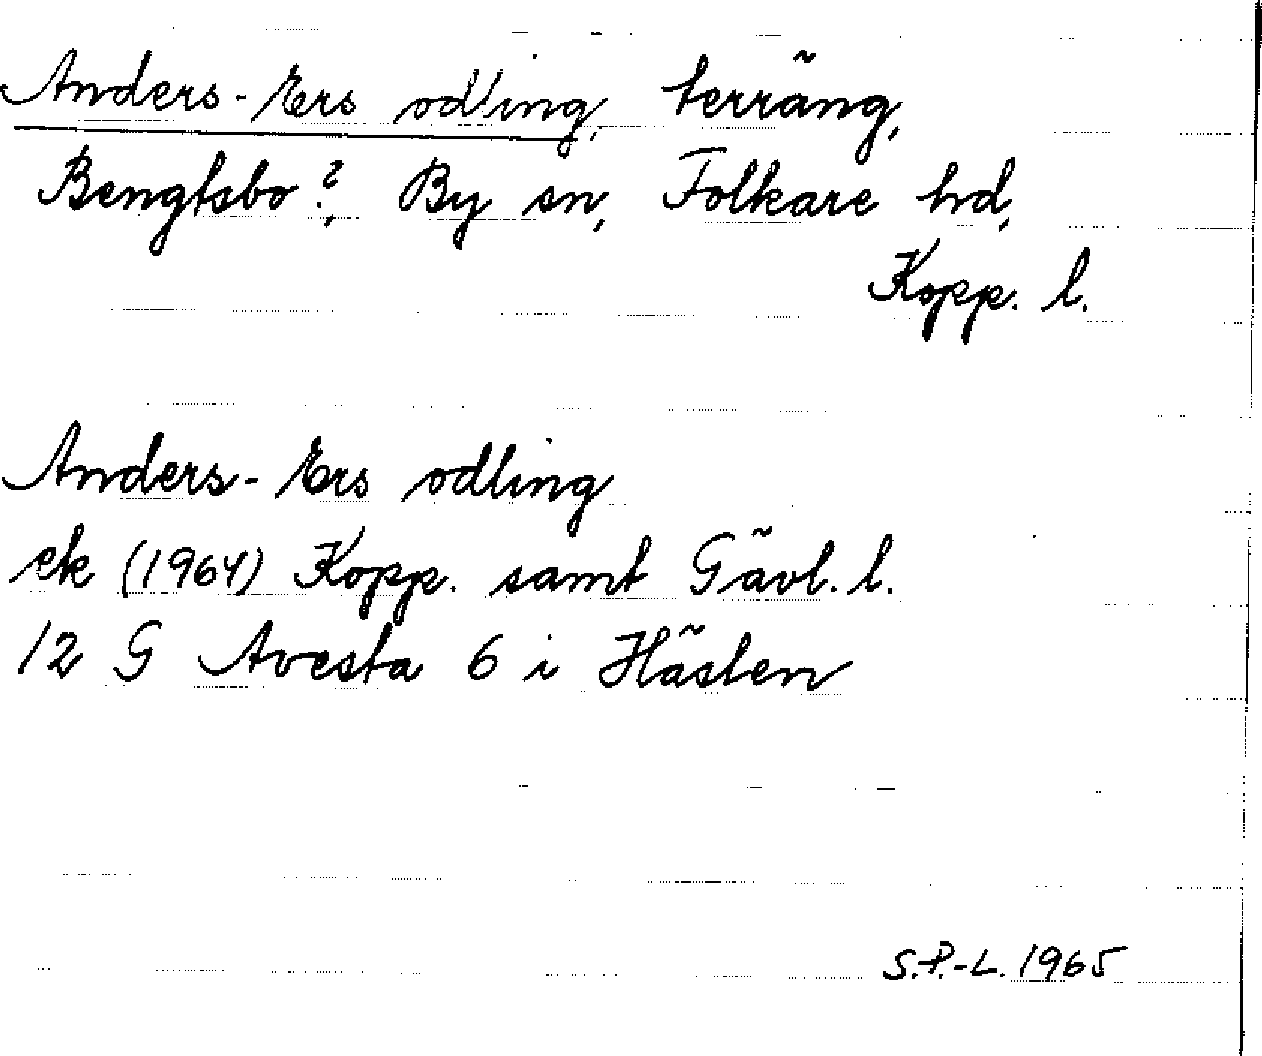 Anders-Ers odling, terräng,
Bengtsbo?, By sn, Folkare hd,
Kopp. l.
Anders-Ers odling
ek (1964) Kopp. samt Gävl. l.
12 G Avesta 6 i Hästen
S.P.-L. 1965